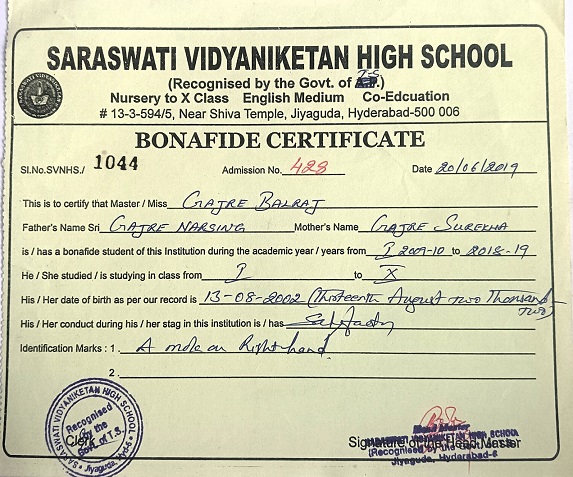 SARASWATI VIDYANIKETAN HIGH SCHOOL
(Recognised by the Govt. of T.S.)
Nursery to X Class English Medium Co-Edcuation
# 13-3-594/5, Near Shiva Temple, Jiyaguda, Hyderabad-500 006
BONAFIDE CERTIFICATE
Sl.No.SVNHS./ 1044 Admission No. 428 Date 20/06/2019
This is to certify that Master / Miss GAJRE BALRAJ
Father's Name Sri GAJRE NARSING Mother's Name GAJRE SUREKHA
is / has a bonafide student of this Institution during the academic year / years from I 2009-10 to 2018-19
He / She studied / is studying in class from I to X
His / Her date of birth as per our record is 13-08-2002 (Thirteenth August Two Thousand
Two)
His / Her conduct during his / her stag in this institution is / has Satisfactory
Identification Marks : 1. A mole on Right hand.
2.
SARASWATI VIDYANIKETAN HIGH SCHOOL
Recognised
by the
Govt. of T.S.
Jiyaguda, Hyd-6
Clerk Signature of the Head Master
Head Master
SARASWATI VIDYANIKETAN HIGH SCHOOL
(Recognised by the Govt. of T.S.)
Jiyaguda, Hyderabad-6